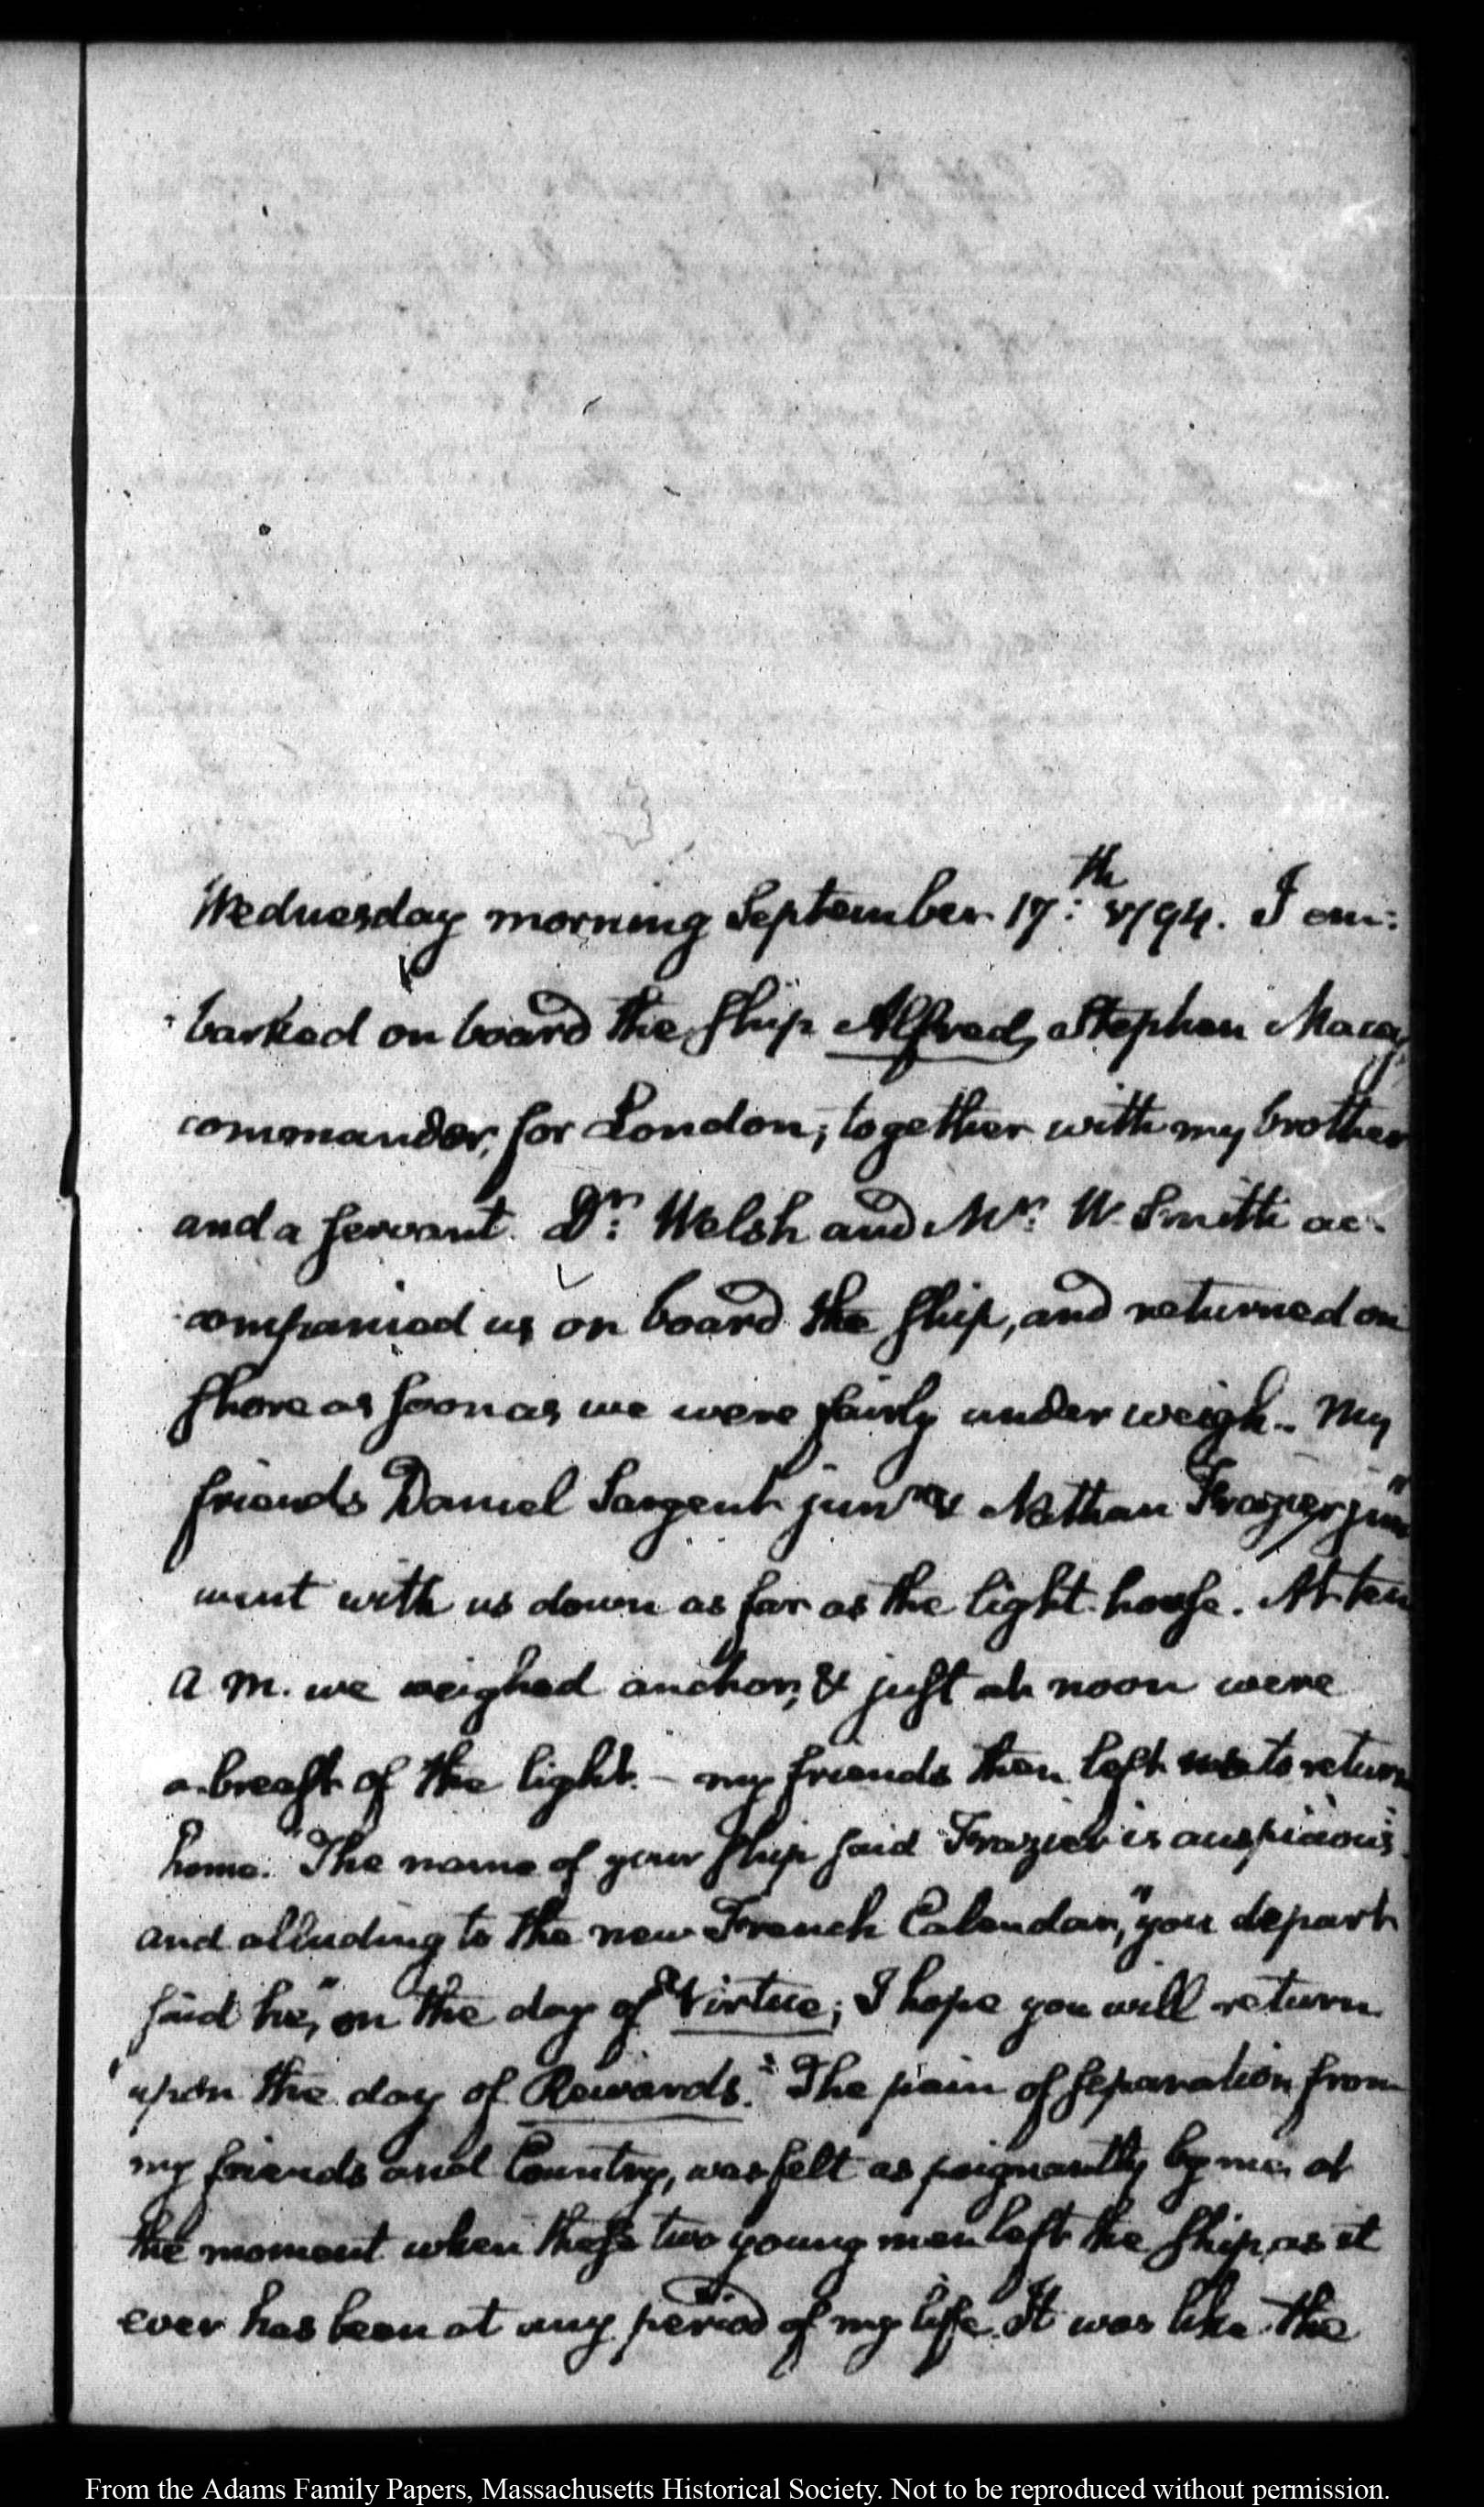 Wednesday morning September 17:th 1794. I em:
barked on board the ship Alfred, Stephen Macey,
commander, for London; together with my brother
and a servant. Dr: Welsh and Mr: W. Smith ac-
companied us on board the ship, and returned on
shore as soon as we were fairly under weigh. My
friends Daniel Sargent junr & Nathan Frazier junr
went with us down as far as the light-house. At ten
A M. we weighed anchor, & just at noon were
a-breast of the light. - my friends then left us to return
home. "The name of your ship said Frazier is auspicious
and alluding to the new French Calendar, "you depart
said he, "on the day of Virtue; I hope you will return
"upon the day of Rewards." The pain of separation from
my friends and Country, was felt as poignantly by me, at
the moment when these two young men left the ship, as it
ever has been at any period of my life. It was like the
From the Adams Family Papers, Massachusetts Historical Society. Not to be reproduced without permission.